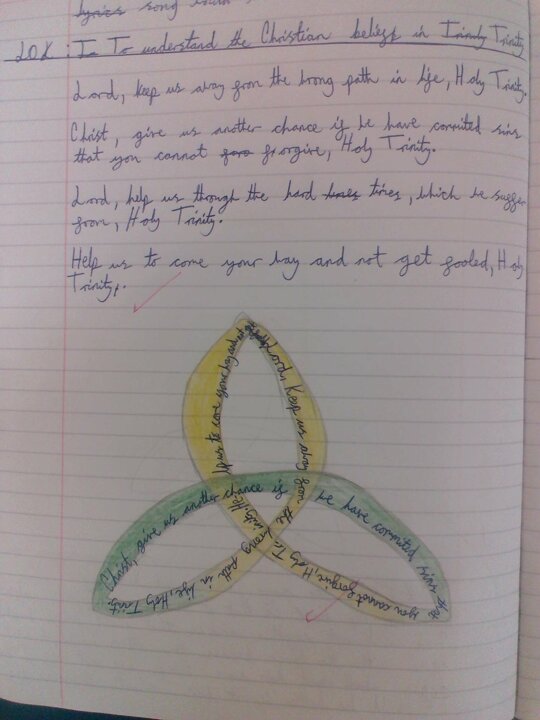 lyrics song
LOX : I To understand the Christian beliefs in Trinity Trinity
Lord, keep us away from the wrong path in life, Holy Trinity.
Christ, give us another chance if we have commited sins
that you cannot forgive, Holy Trinity.
Lord, help us through the hard times, which we suffer
from, Holy Trinity.
Help us to come your way and not get fooled, Holy
Trinity.
Lord, Keep us away from the wrong path in life, Holy Trinity.
Christ, give us another chance if we have commited sins that
you cannot forgive, Holy Trinity, Help us to come your way and not get